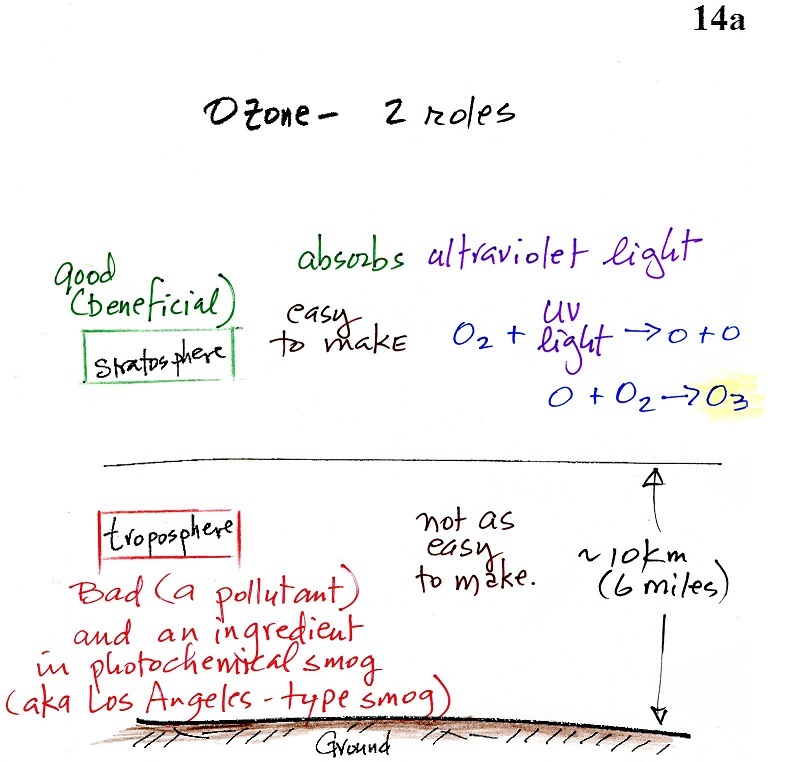 14a
Ozone - 2 roles
good
(beneficial)
stratosphere
absorbs ultraviolet light
easy
to make
O₂ + UV light → O + O
O + O₂ → O₃
troposphere
Bad (a pollutant)
and an ingredient
in photochemical smog
(aka Los Angeles - type smog)
not as
easy
to make.
~10km
(6 miles)
Ground